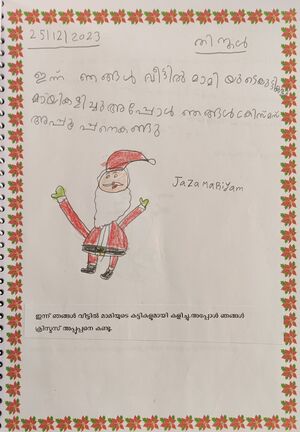 25/12/2023
തിങ്കൾ
ഇന്ന് ഞങ്ങൾ വീട്ടിൽ മാമി യുടെകുട്ടികളു
മായികളിച്ചുഅപ്പോൾ ഞങ്ങൾക്രിസ്മസ്
അപ്പൂ പ്പനെകണ്ടു
Jaza mariyam
ഇന്ന് ഞങ്ങൾ വീട്ടിൽ മാമിയുടെ കുട്ടികളുമായി കളിച്ചു.അപ്പോൾ ഞങ്ങൾ
ക്രിസ്മസ് അപ്പൂപ്പനെ കണ്ടു.